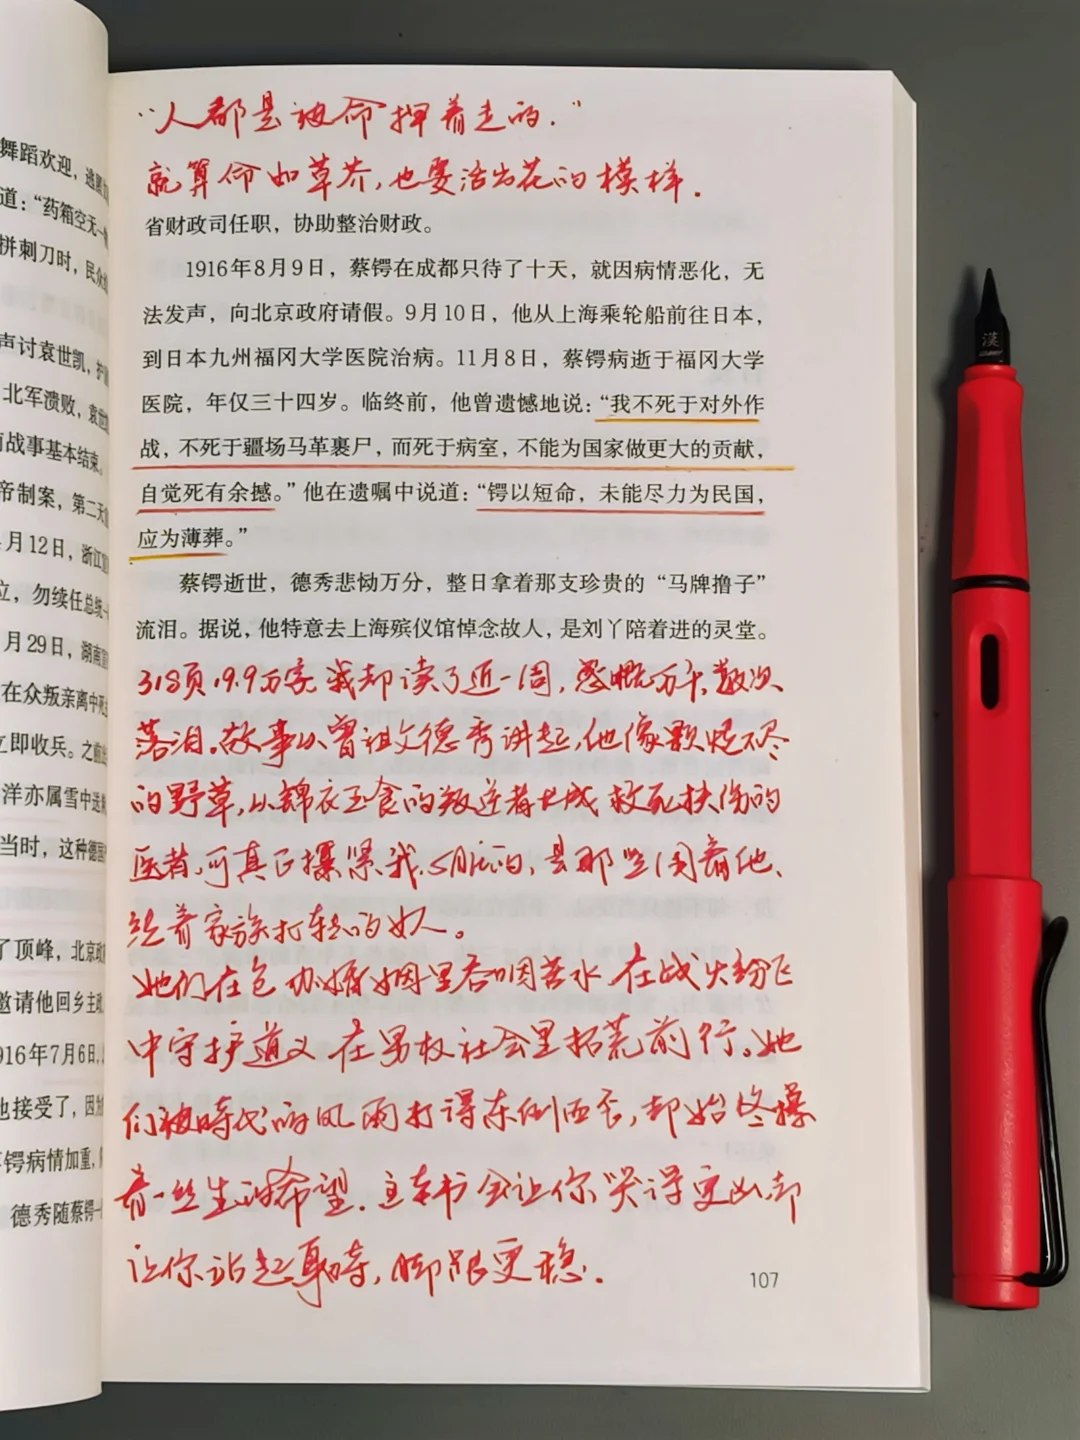 舞蹈欢迎，逃
道：“药箱空无一
拼刺刀时，民众
声讨袁世凯，护
北军溃败，袁世
战事基本结束。
帝制案，第二天
月12日，浙江
立，勿续任总统
月29日，湖南
在众叛亲离中死
立即收兵。之前
洋亦属雪中送
当时，这种德国
了顶峰，北京政
邀请他回乡主政
916年7月6日，
也接受了，因
锷病情加重，
德秀随蔡锷一
“人都是被命押着走的.”
就算命如草芥，也要活出花的模样.
省财政司任职，协助整治财政。
1916年8月9日，蔡锷在成都只待了十天，就因病情恶化，无
法发声，向北京政府请假。9月10日，他从上海乘轮船前往日本，
到日本九州福冈大学医院治病。11月8日，蔡锷病逝于福冈大学
医院，年仅三十四岁。临终前，他曾遗憾地说：“我不死于对外作
战，不死于疆场马革裹尸，而死于病室，不能为国家做更大的贡献，
自觉死有余憾。”他在遗嘱中说道：“锷以短命，未能尽力为民国，
应为薄葬。”
蔡锷逝世，德秀悲恸万分，整日拿着那支珍贵的“马牌撸子”
流泪。据说，他特意去上海殡仪馆悼念故人，是刘丫陪着进的灵堂。
318页19.9万字我却读了近一周，感慨万千、数次
落泪。故事从曾祖父德秀讲起，他像颗烧不尽
的野草，从锦衣玉食的叛逆者长成救死扶伤的
医者，可真正攥紧我心脏的，是那些围着他、
绕着家族打转的女人。
她们在包办婚姻里吞咽苦水 在战火纷飞
中守护道义 在男权社会里拓荒前行。她
们被時代的风雨打得东倒西歪，却始终攥
着一丝生的希望. 这本书会让你哭得更凶，却
让你站起来時，脚跟更稳.
107
漢